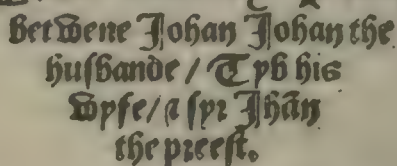 betwene Johan Johan the
husbande / Tyb his
wyfe / ⁊ syr Jhãn
the preest.